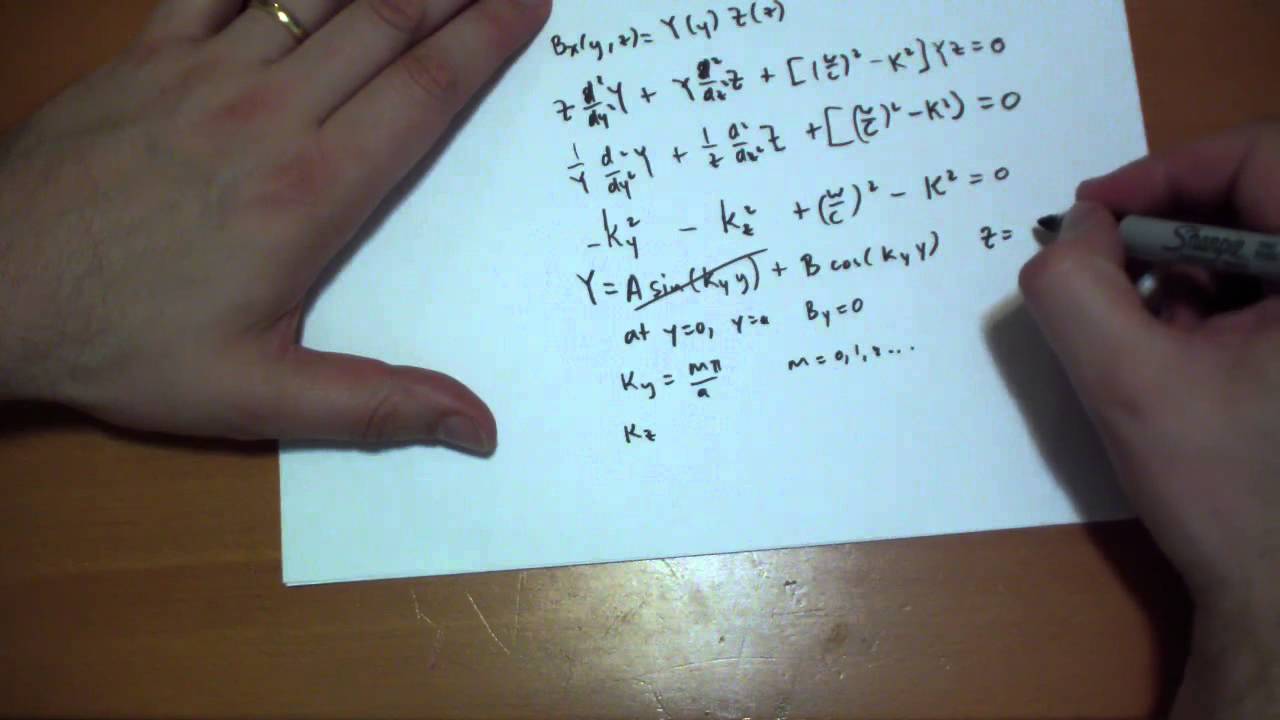 Bx(y,z) = Y(y) Z(z)
Z d²/dy² Y + Y d²/dz² Z + [(ω/c)² - K²] YZ = 0
1/Y d²/dy² Y + 1/Z d²/dz² Z + [(ω/c)² - K²) = 0
-ky² - kz² + (ω/c)² - K² = 0
Y = A sin(ky y) + B cos(ky y) Z =
at y=0, y=a By=0
Ky = mπ/a m = 0, 1, 2 ...
Kz
Sharpie